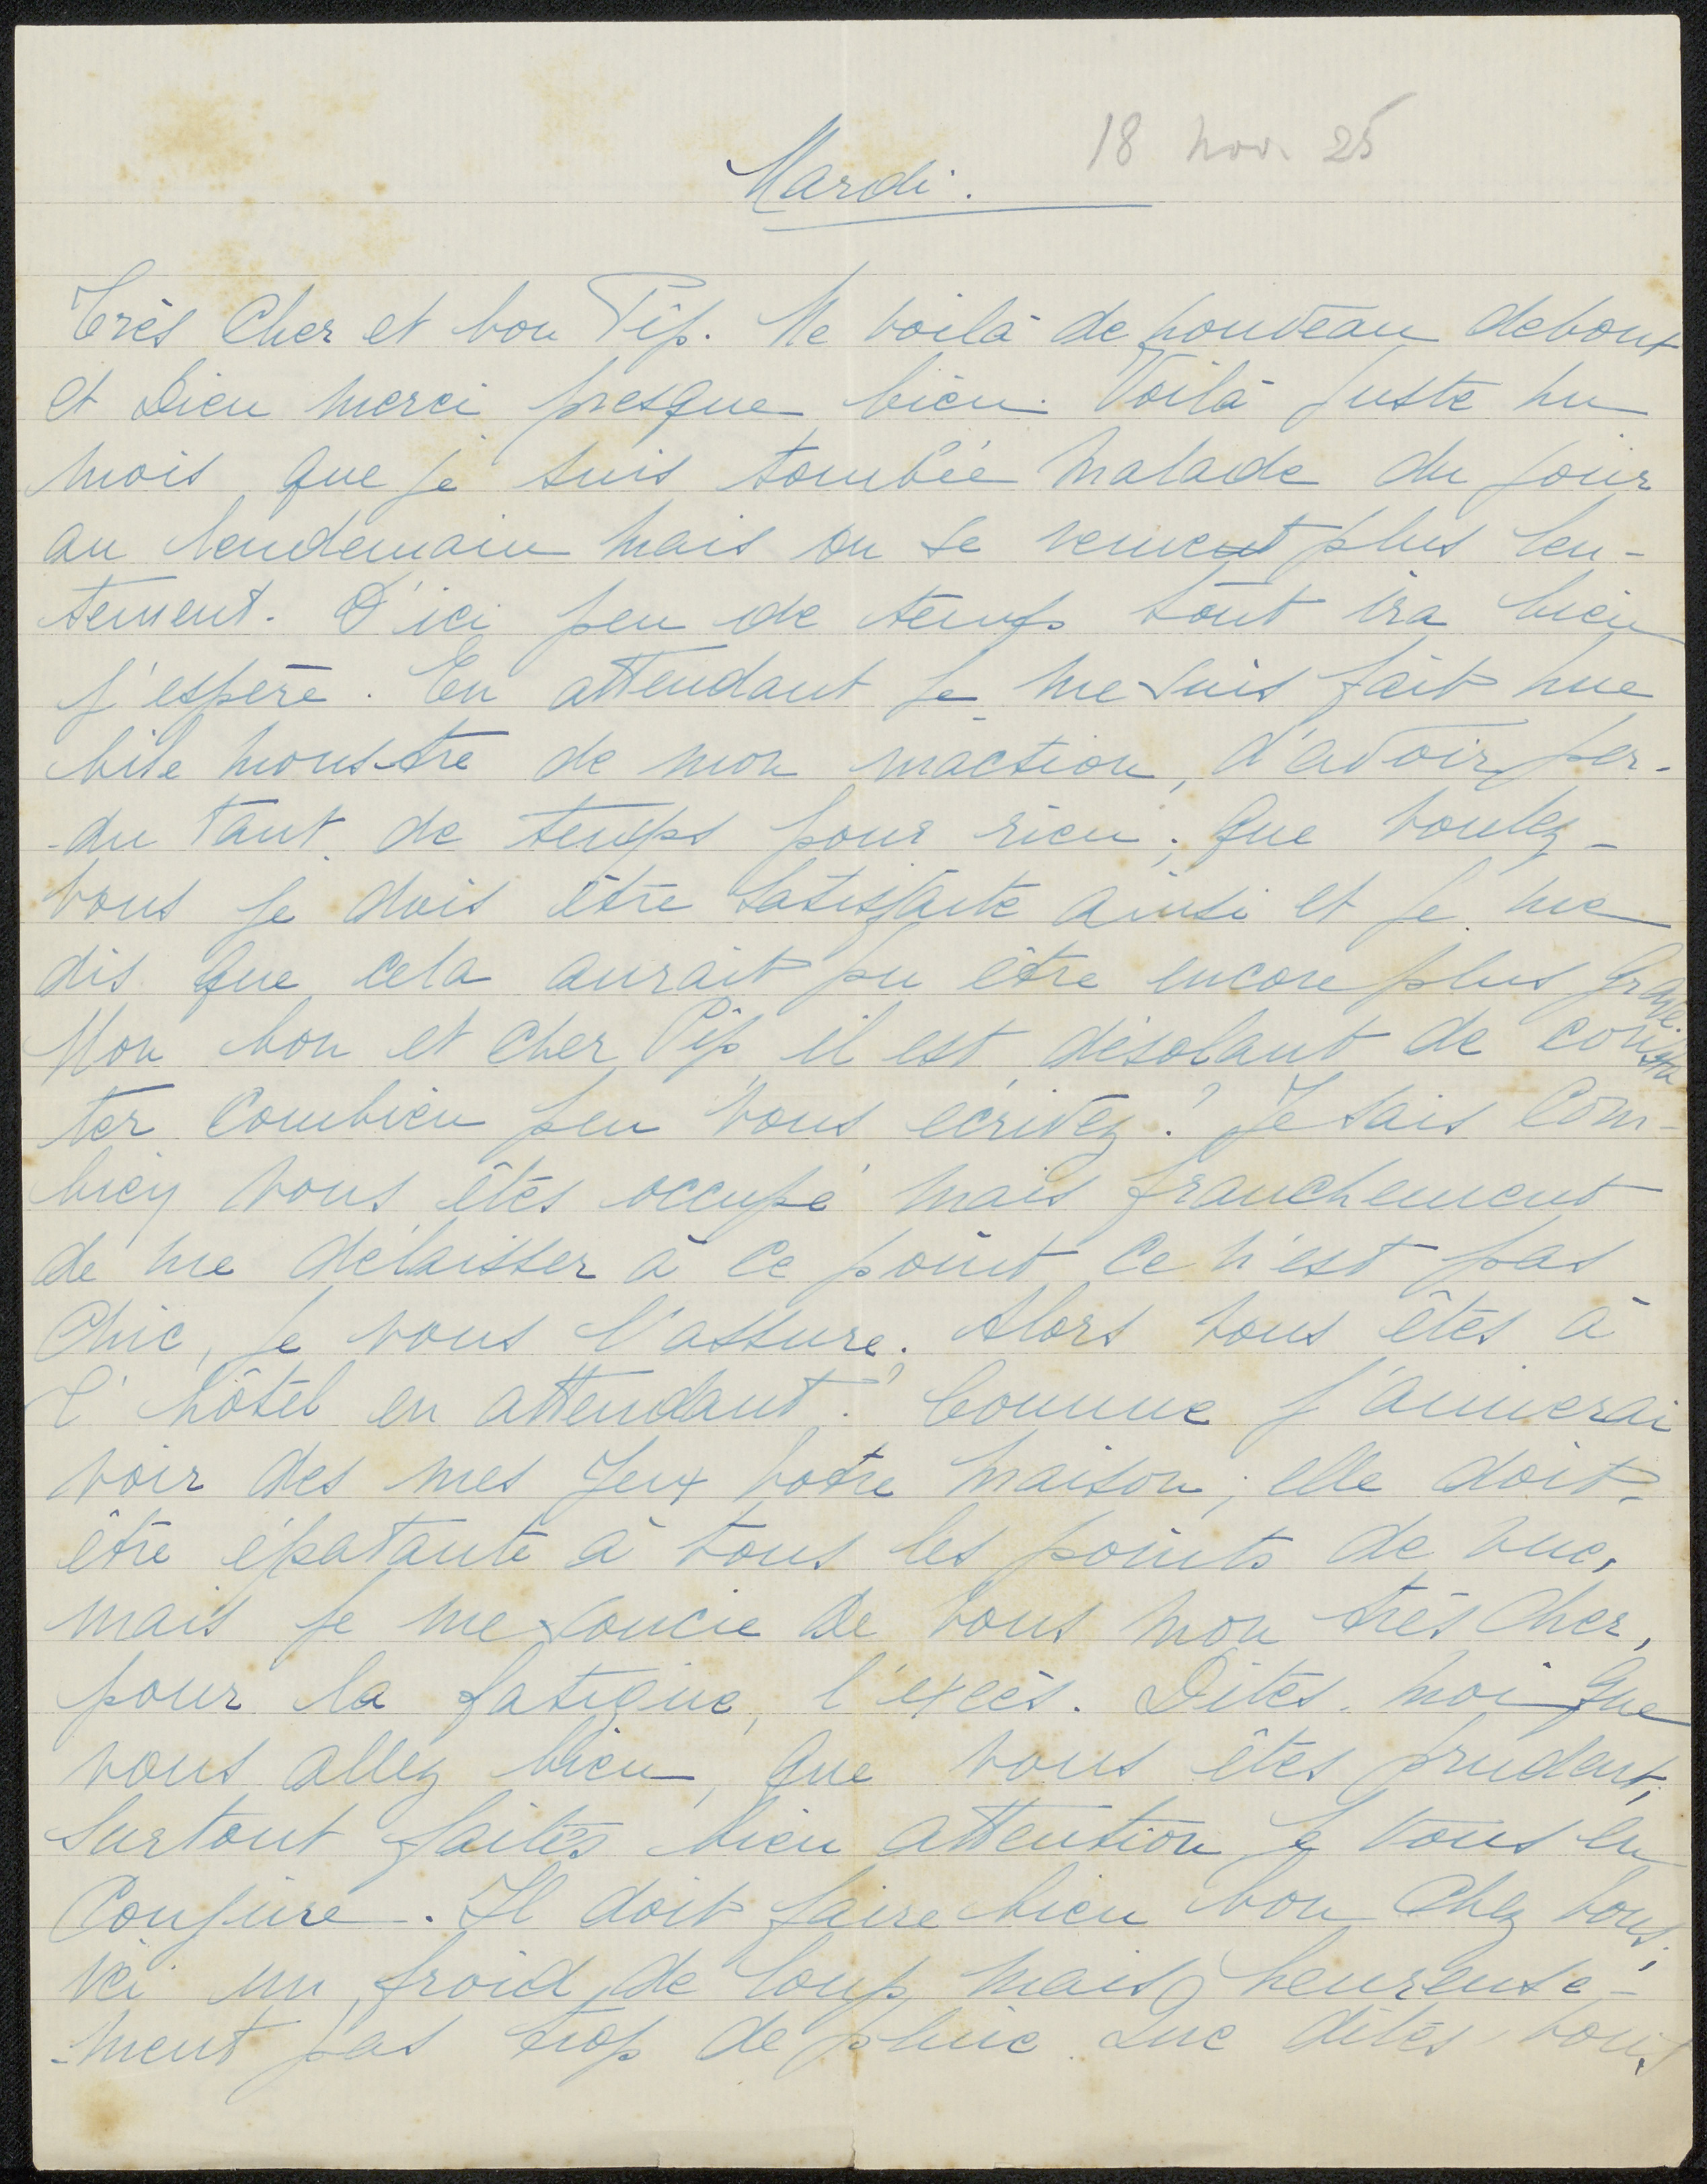 18 nov. 25
Mardi.
Très Cher et bon Pip. Me voilà de nouveau debout
et Dieu merci presque bien. Voilà juste un
mois que je suis tombée malade du jour
au lendemain mais on se remet plus len-
tement. D'ici peu de temps tout ira bien
j'espère. En attendant je me suis fait une
bile monstre de mon inaction, d'avoir per-
-du tant de temps pour rien; que voulez-
vous je dois être satisfaite ainsi et je me
dis que cela aurait pu être encore plus grave.
Mon bon et cher Pip il est désolant de consta
ter combien peu vous écrivez! Je sais com-
bien vous êtes occupé mais franchement
de me délaisser à ce point ce n'est pas
Chic, je vous l'assure. Alors vous êtes à
l'hôtel en attendant? Comme j'aimerai
voir des mes yeux votre maison; elle doit-
être épatante à tous les points de vue,
mais je me soucie de vous mon très cher,
pour la fatigue, l'excès. Dites-moi que
vous allez bien, que vous êtes prudent,
surtout faites bien attention je vous en
Conjure. Il doit faire bien bon chez vous;
ici un froid de loup mais heureuse-
-ment pas trop de pluie. Que dites vous